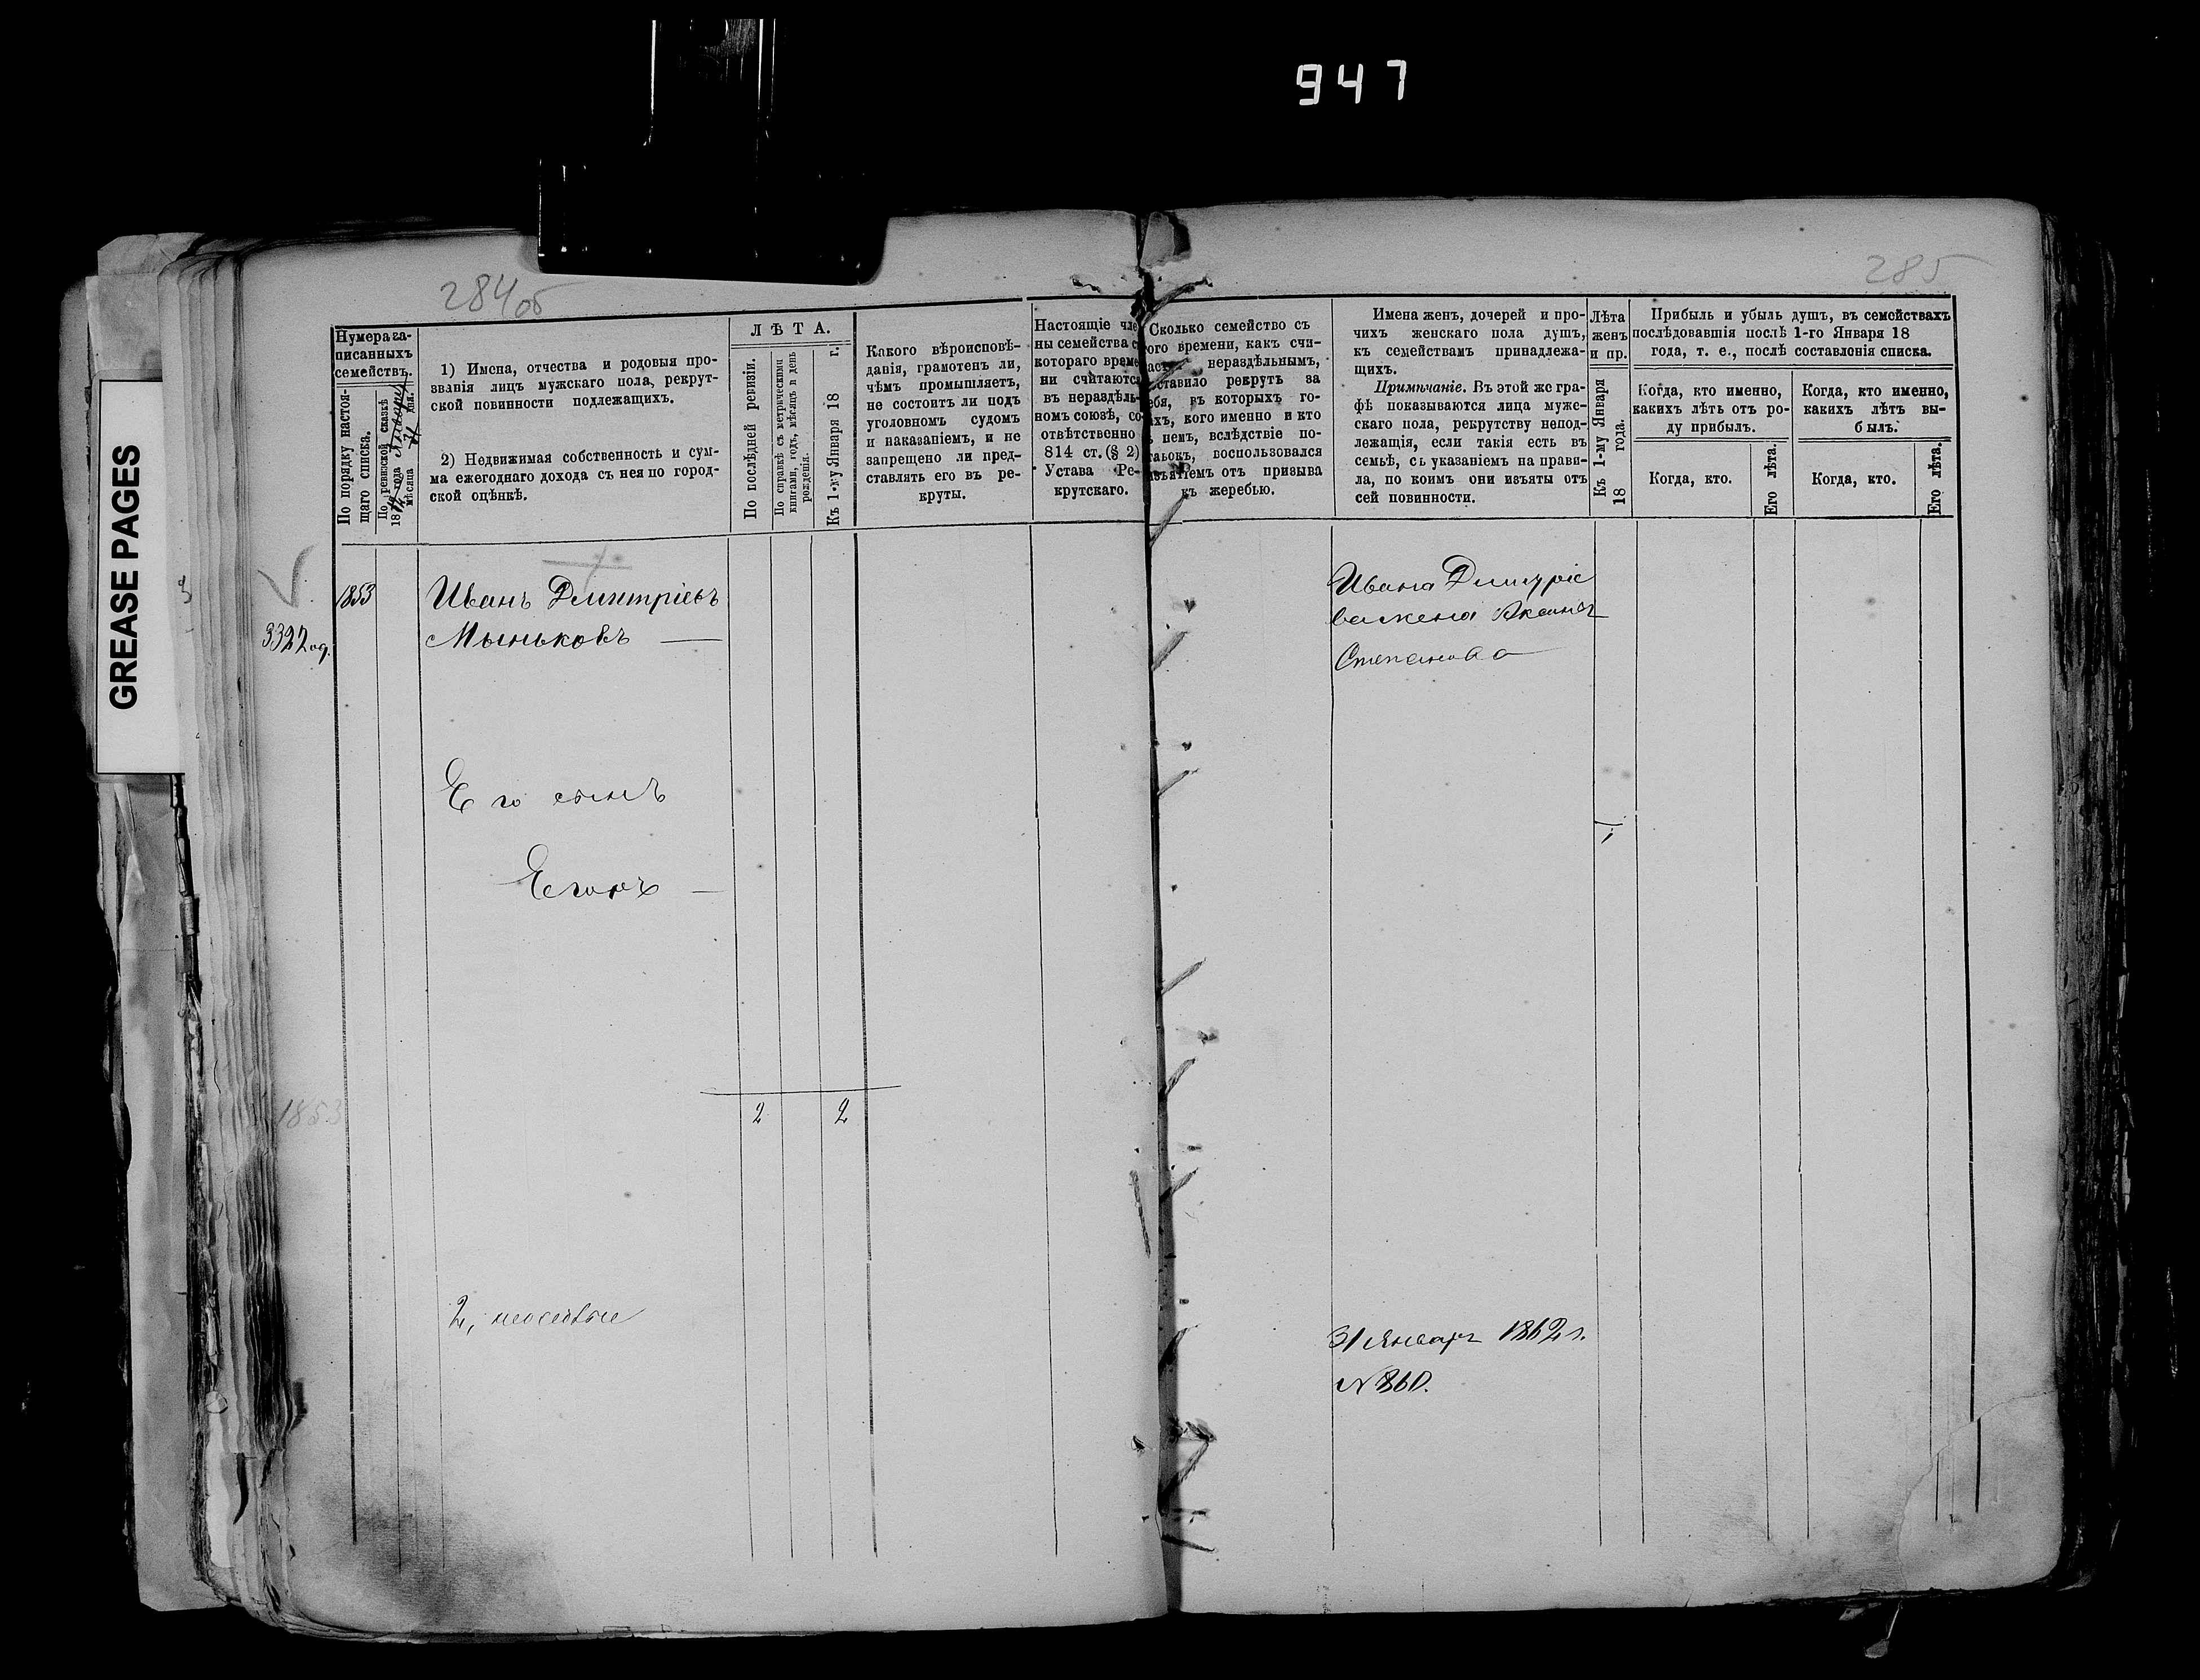 947
GREASE PAGES
284об
285
Нумера за-
писанныхъ
семействъ.
По порядку настоя-
щаго списка.
По ревизской сказкѣ
18 года Января
мѣсяца 31 дня.
1) Имена, отчества и родовыя про-
званія лицъ мужскаго пола, рекрут-
ской повинности подлежащихъ.
2) Недвижимая собственность и сум-
ма ежегоднаго дохода съ нея по город-
ской оцѣнкѣ.
ЛѢТА.
По послѣдней ревизіи.
По справкѣ съ метрическими
книгами, годъ, мѣсяцъ и день
рожденія.
Къ 1-му Января 18 г.
Какого вѣроисповѣ-
данія, грамотенъ ли,
чѣмъ промышляетъ,
не состоитъ ли подъ
уголовномъ судомъ
и наказаніемъ, и не
запрещено ли пред-
ставлять его въ ре-
круты.
Настоящіе чле
ны семейства с
котораго време
ни считаются
въ нераздѣль-
номъ союзѣ, со
отвѣтственно
814 ст. (§ 2)
Устава Ре-
крутскаго.
Сколько семейство съ
ого времени, какъ счи-
нераздѣльнымъ,
ставило рекрутъ за
ебя, въ которыхъ го-
хъ, кого именно и кто
немъ, вслѣдствіе по-
воспользовался
изъятіемъ отъ призыва
къ жеребью.
Имена женъ, дочерей и про-
чихъ женскаго пола душъ,
къ семействамъ принадлежа-
щихъ.
Примѣчаніе. Въ этой же гра-
фѣ показываются лица муже-
скаго пола, рекрутству непод-
лежащія, если такія есть въ
семьѣ, съ указаніемъ на прави-
ла, по коимъ они изъяты отъ
сей повинности.
Лѣта
женъ
и пр.
Къ 1-му Января
18 года.
Прибыль и убыль душъ, въ семействахъ
послѣдовавшія послѣ 1-го Января 18
года, т. е., послѣ составлонія списка.
Когда, кто именно,
какихъ лѣтъ отъ ро-
ду прибылъ.
Когда, кто именно,
какихъ лѣтъ вы-
былъ.
Когда, кто.
Его лѣта.
Когда, кто.
Его лѣта.
1853
Иванъ Дмитріевъ
Мыньковъ
3322
Ивана Дмитріе
ва жена Аксинья
Степанова
Его сынъ
Егоръ
1853
2 2
2,
31 Января 1862 г.
N 860.